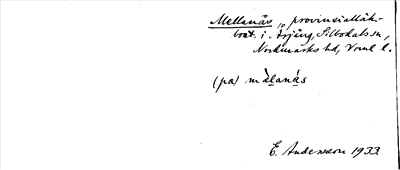 Mellanäs, provinsialläk-
bost. i Årjäng, Silbodals sn,
Nordmarks hd, Vrml l.
(pa) mälanäs
E. Andersson 1933